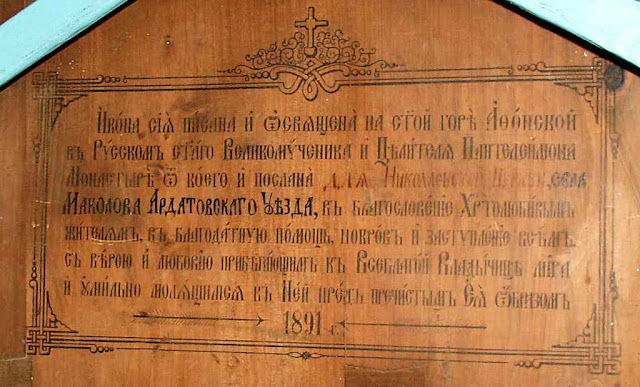 Икона сiя писана и ѡсвящена на ст҃ой горѣ Аѳонской
въ Русскомъ ст҃аго Великомученика и Цѣлителя Пантелеймона
Монастырѣ ѿ коего и послана для Николаевской Церкви, села
Маколова Ардатовскаго Уѣзда, въ благословенiе Хр҃толюбивымъ
жителямъ, въ благодатную помощь, покровъ и заступленiе всѣмъ,
съ вѣрою и любовiю прибѣгающимъ къ Всеблагой Владычицѣ мiра
и умильно молящимся къ Ней предъ пречистымъ Ея ѡбразомъ
1891 г.